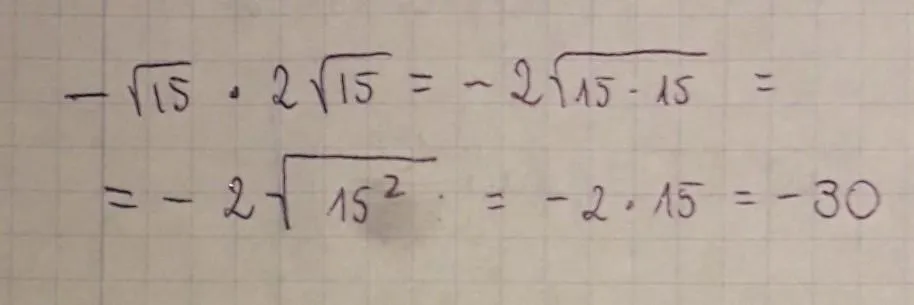 -√15 · 2√15 = -2√15·15 =
= -2√15² = -2·15 = -30